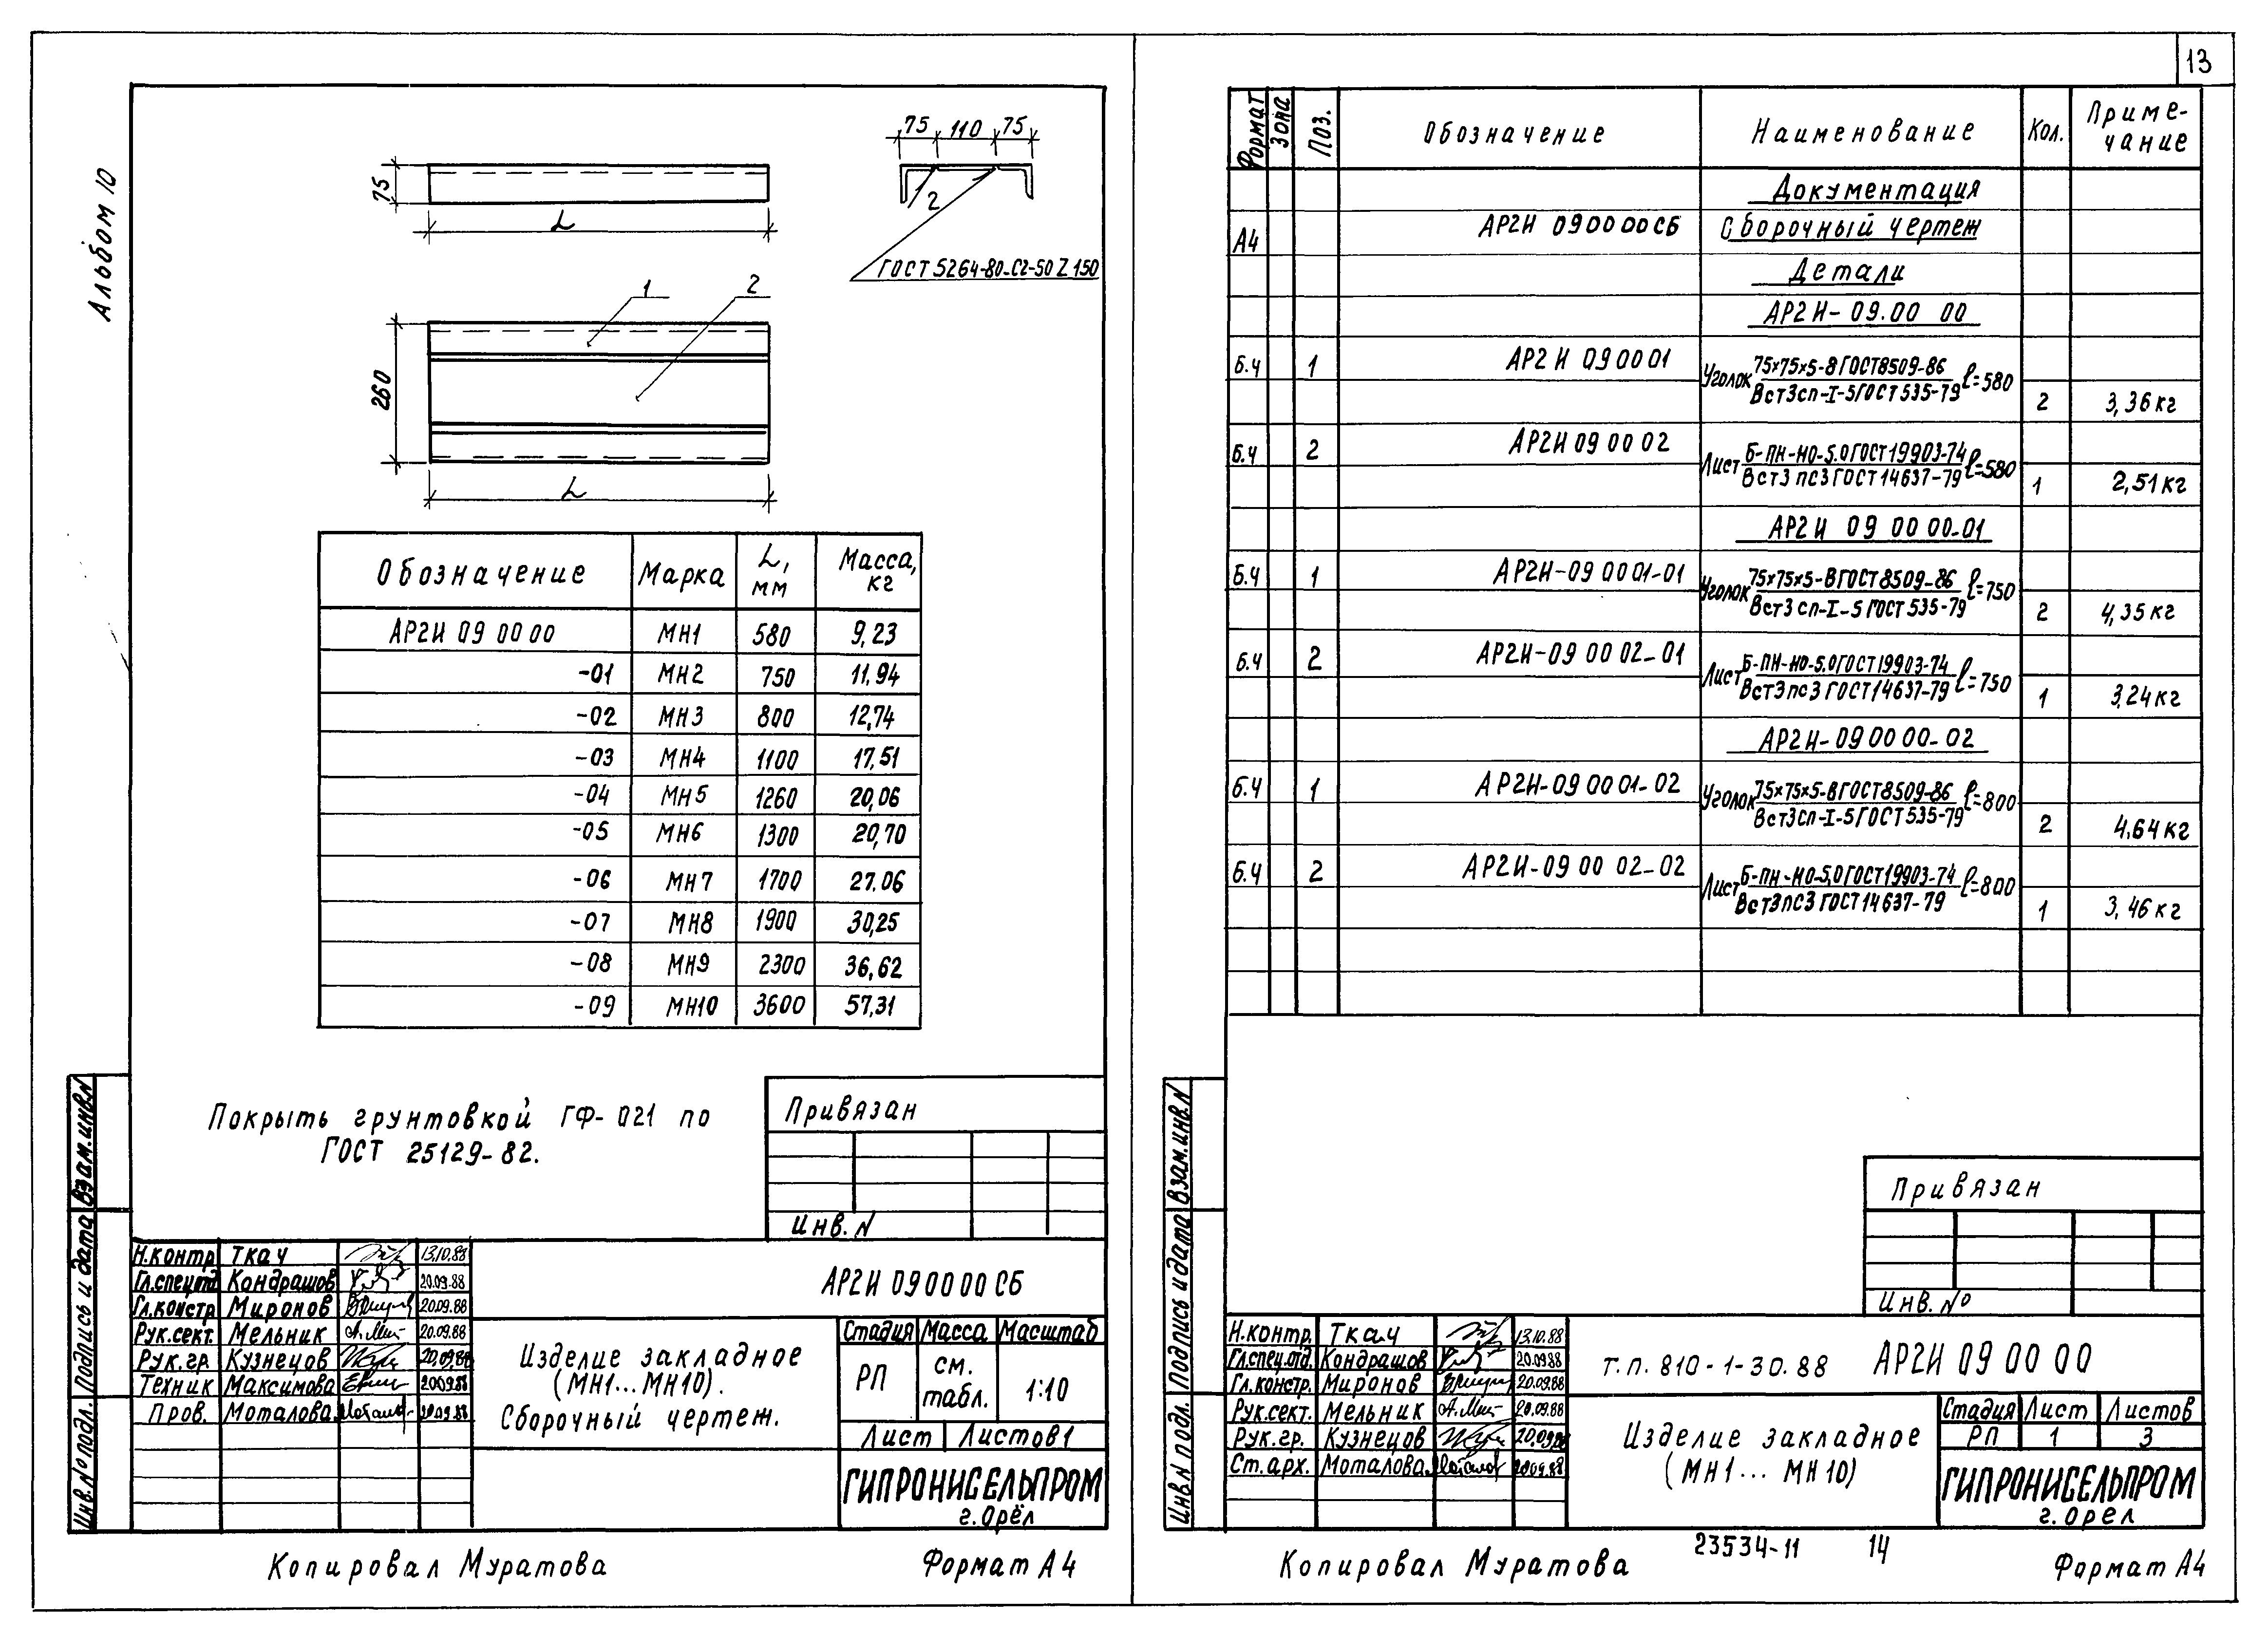 13
Альбом 10
75 110 75
75
L
2
ГОСТ 5264-80-С2-50 Z 150
1 2
260
L
Обозначение Марка L, мм Масса, кг
АР2И 09 00 00 МН1 580 9,23
-01 МН2 750 11,94
-02 МН3 800 12,74
-03 МН4 1100 17,51
-04 МН5 1260 20,06
-05 МН6 1300 20,70
-06 МН7 1700 27.06
-07 МН8 1900 30,25
-08 МН9 2300 36,62
-09 МН10 3600 57,31
Покрыть грунтовкой ГФ-021 по
ГОСТ 25129-82.
Привязан
Инв. N
Взам.инв.N
Подпись и дата
Инв.№ подл.
Н.контр Ткач 13.10.88
Гл.спец.отд Кондрашов 20.09.88
Гл.констр Миронов 20.09.88
Рук.сект. Мельник 20.09.88
Рук.гр. Кузнецов 20.09.88
Техник Максимова 20.09.88
Пров. Моталова 20.09.88
АР2И 09 00 00 СБ
Изделие закладное
(МН1...МН10).
Сборочный чертеж.
Стадия Масса Масштаб
РП см. табл. 1:10
Лист Листов 1
ГИПРОНИСЕЛЬПРОМ
г. Орёл
Копировал Муратова Формат А4
Формат Зона Поз. Обозначение Наименование Кол. Приме-
чание
Документация
А4 АР2И 09 00 00 СБ Сборочный чертеж
Детали
АР2И-09.00 00
Б.Ч 1 АР2И 09 00 01 Уголок 75×75×5-В ГОСТ 8509-86 ℓ=580
Вст3сп-I-5 ГОСТ 535-79 2 3,36 кг
Б.Ч 2 АР2И 09 00 02 Лист Б-ПН-НО-5.0 ГОСТ 19903-74 ℓ=580
Вст3 пс3 ГОСТ 14637-79 1 2,51 кг
АР2И 09 00 00-01
Б.Ч 1 АР2И-09 00 01-01 Уголок 75×75×5-В ГОСТ 8509-86 ℓ=750
Вст3 сп-I-5 ГОСТ 535-79 2 4,35 кг
Б.Ч 2 АР2И-09 00 02-01 Лист Б-ПН-НО-5.0 ГОСТ 19903-74 ℓ=750
Вст3 пс3 ГОСТ 14637-79 1 3,24 кг
АР2И-09 00 00-02
Б.Ч 1 АР2И-09 00 01-02 Уголок 75×75×5-В ГОСТ 8509-86 ℓ=800
Вст3сп-I-5 ГОСТ 535-79 2 4,64 кг
Б.Ч 2 АР2И-09 00 02-02 Лист Б-ПН-НО-5,0 ГОСТ 19903-74 ℓ=800
Вст3пс3 ГОСТ 14637-79 1 3,46 кг
Привязан
Инв. №
Взам.инв.N
Подпись и дата
Инв.N подл.
Н.контр. Ткач 13.10.88
Гл.спец.отд. Кондрашов 20.09.88
Гл.констр. Миронов 20.09.88
Рук.сект. Мельник 20.09.88
Рук.гр. Кузнецов 20.09.88
Ст.арх. Моталова 20.09.88
т.п. 810-1-30.88 АР2И 09 00 00
Изделие закладное
(МН1... МН10)
Стадия Лист Листов
РП 1 3
ГИПРОНИСЕЛЬПРОМ
г. Орел
23534-11 14
Копировал Муратова Формат А4